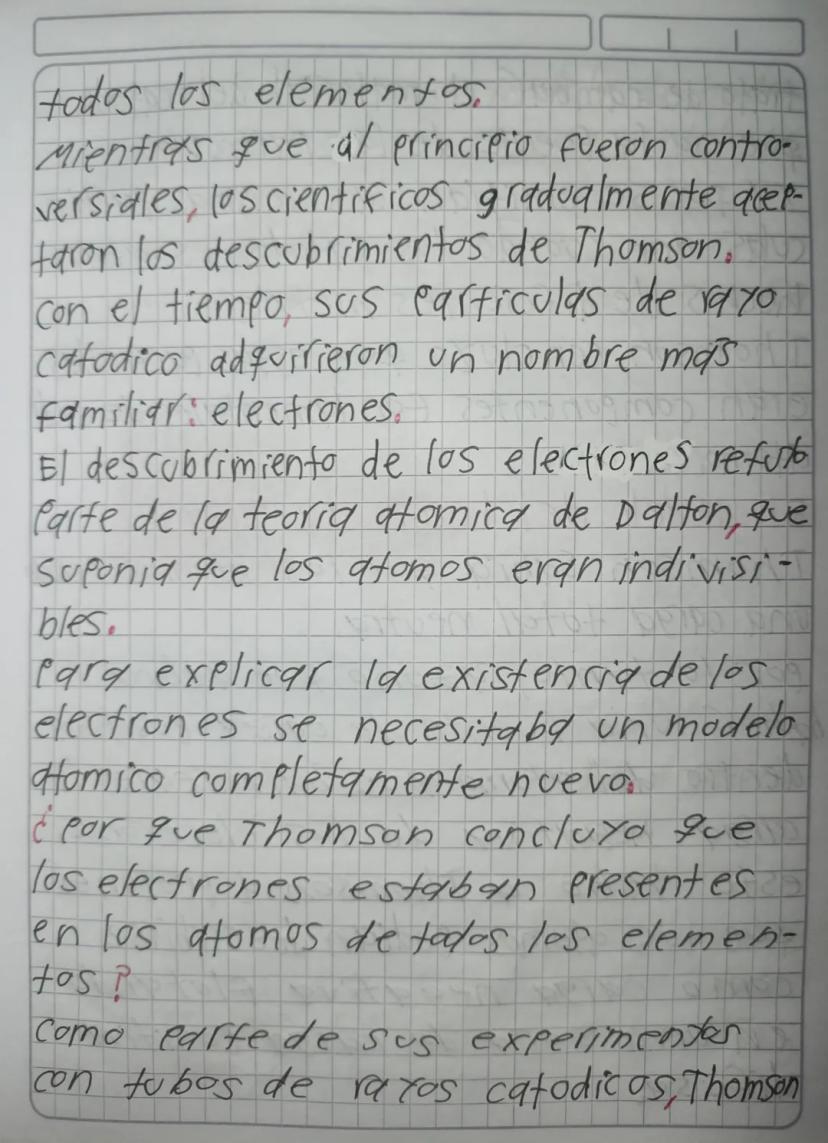 todos los elementos.
Mientras que al principio fueron contro-
versiales, los cientificos gradualmente acep-
taron los descubrimientos de Thomson.
con el tiempo, sus particulas de rayo
catodico adquirieron un nombre más
familiar: electrones.
El descubrimiento de los electrones refuto
parte de la teoria atomica de Dalton, que
suponia que los atomos eran indivisi-
bles.
para explicar la existencia de los
electrones se necesitaba un modelo
atomico completamente nuevo.
¿por que Thomson concluyo que
los electrones estaban presentes
en los atomos de todos los elemen-
tos?
como parte de sus experimentos
con tubos de rayos catodicos, Thomson